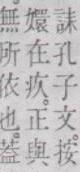 誄孔子文按
嬛在疚正與
無所依也葢